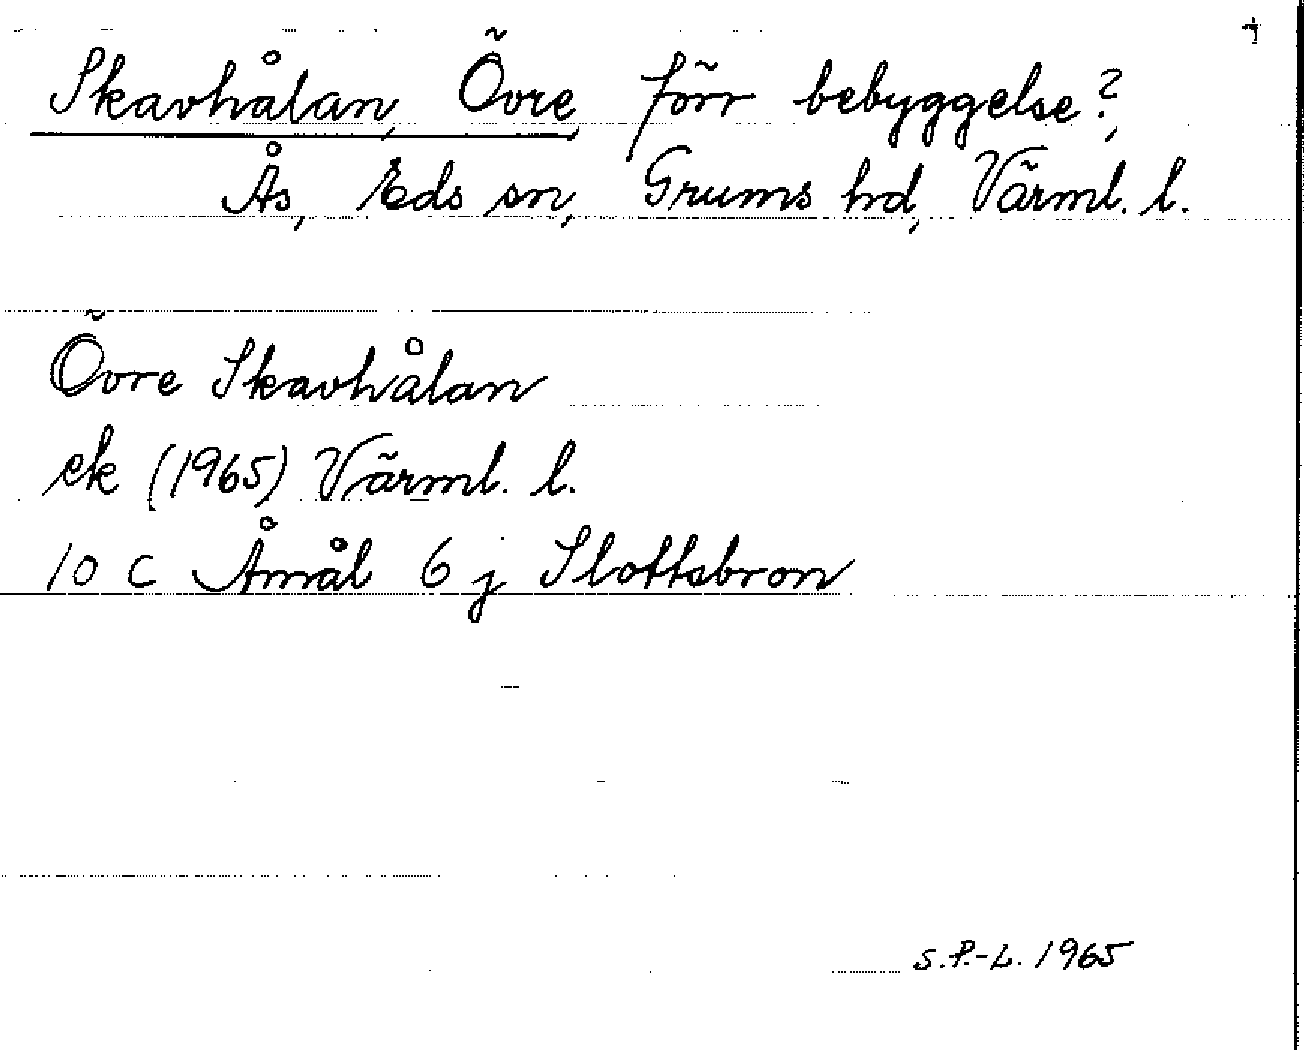 Skavhålan, Övre, förr bebyggelse?,
Ås, Eds sn, Grums hd, Värml. l.
Övre Skavhålan
ek (1965) Värml. l.
10 C Åmål 6 j Slottsbron
S.P.-L. 1965